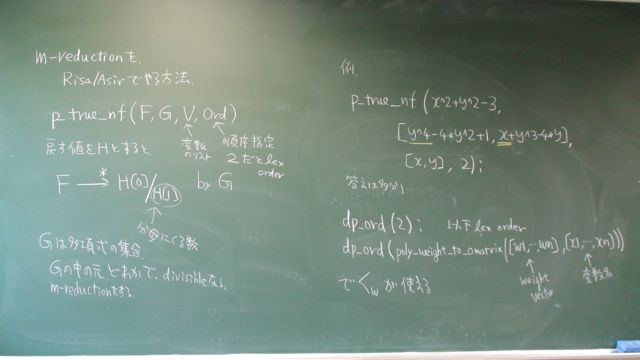 m-reductionを
Risa/Asirでやる方法.
p_true_nf(F, G, V, Ord)
変数のリスト
順序指定
2だとlex
order
戻す値をHとすると
F →* H[0]/H[1] by G
分母にくる数
Gは多項式の集合.
Gの中の元どれかで, divisibleなら,
m-reductionをする
例.
p_true_nf(x^2+y^2-3,
[y^4-4*y^2+1, x+y^3-4*y],
[x,y], 2);
答えは多分1
dp_ord(2); 以下lex order
dp_ord(poly_weight_to_omatrix([w1,…wn],[x1,…,xn]))
weight
vector
変数名
で <w が使える